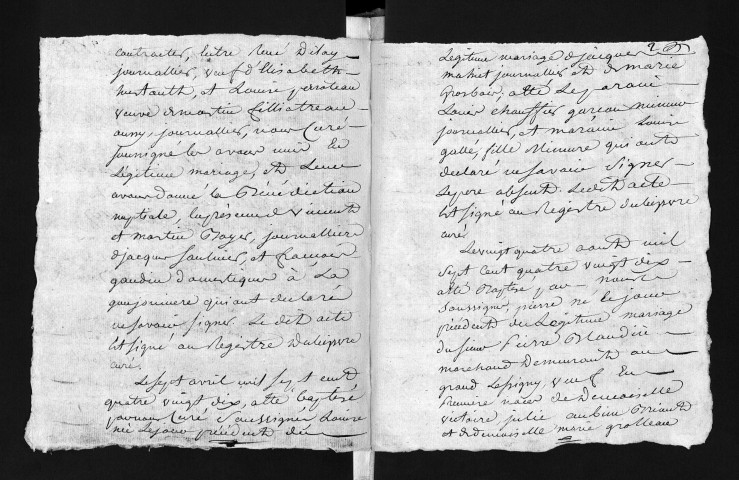 contractés, entre René Delay
journallier, veuf d'Elisabeth
et Louise perroteau
veuve de martin filliatreau
aussy journallier, nous Curé
soussigné les avons unis En
Légitime mariage, et Leur
avons donné la Bénédiction
nuptiale, En présence de vincent
et martin Boyer, journalliers
de jacques saulnier, et francois
gaudin domestique à La
qui ont declaré
ne savoir signer. Le dit acte
Est signé au Registre Dubeyvre
curé.
Le sept avril mil sept cent
quatre vingt dix, a été baptisé
par nous Curé Soussigné Louise
née Le jour précédent du
Légitime mariage de jacques
journallier, et de marie
a été Le parain
Louis chauffier garcon mineur
journallier, et maraine Louise
gallé, fille Mineure qui ont
declaré ne savoir Signer
Le pere absent. Le dit acte
Est signé au Registre Dubeyvre
curé
Le vingt quatre aout mil
Sept Cent quatre vingt dix
a été Baptisé par nous
Soussigné, pierre né le jour
précédent du Légitime mariage
du sieur Pierre Blaudin
marchand Demeurant au
grand Lesigny, veuf En
premiere noces de Demoiselle
victoire julie aubin
et de demoiselle marie grolleau